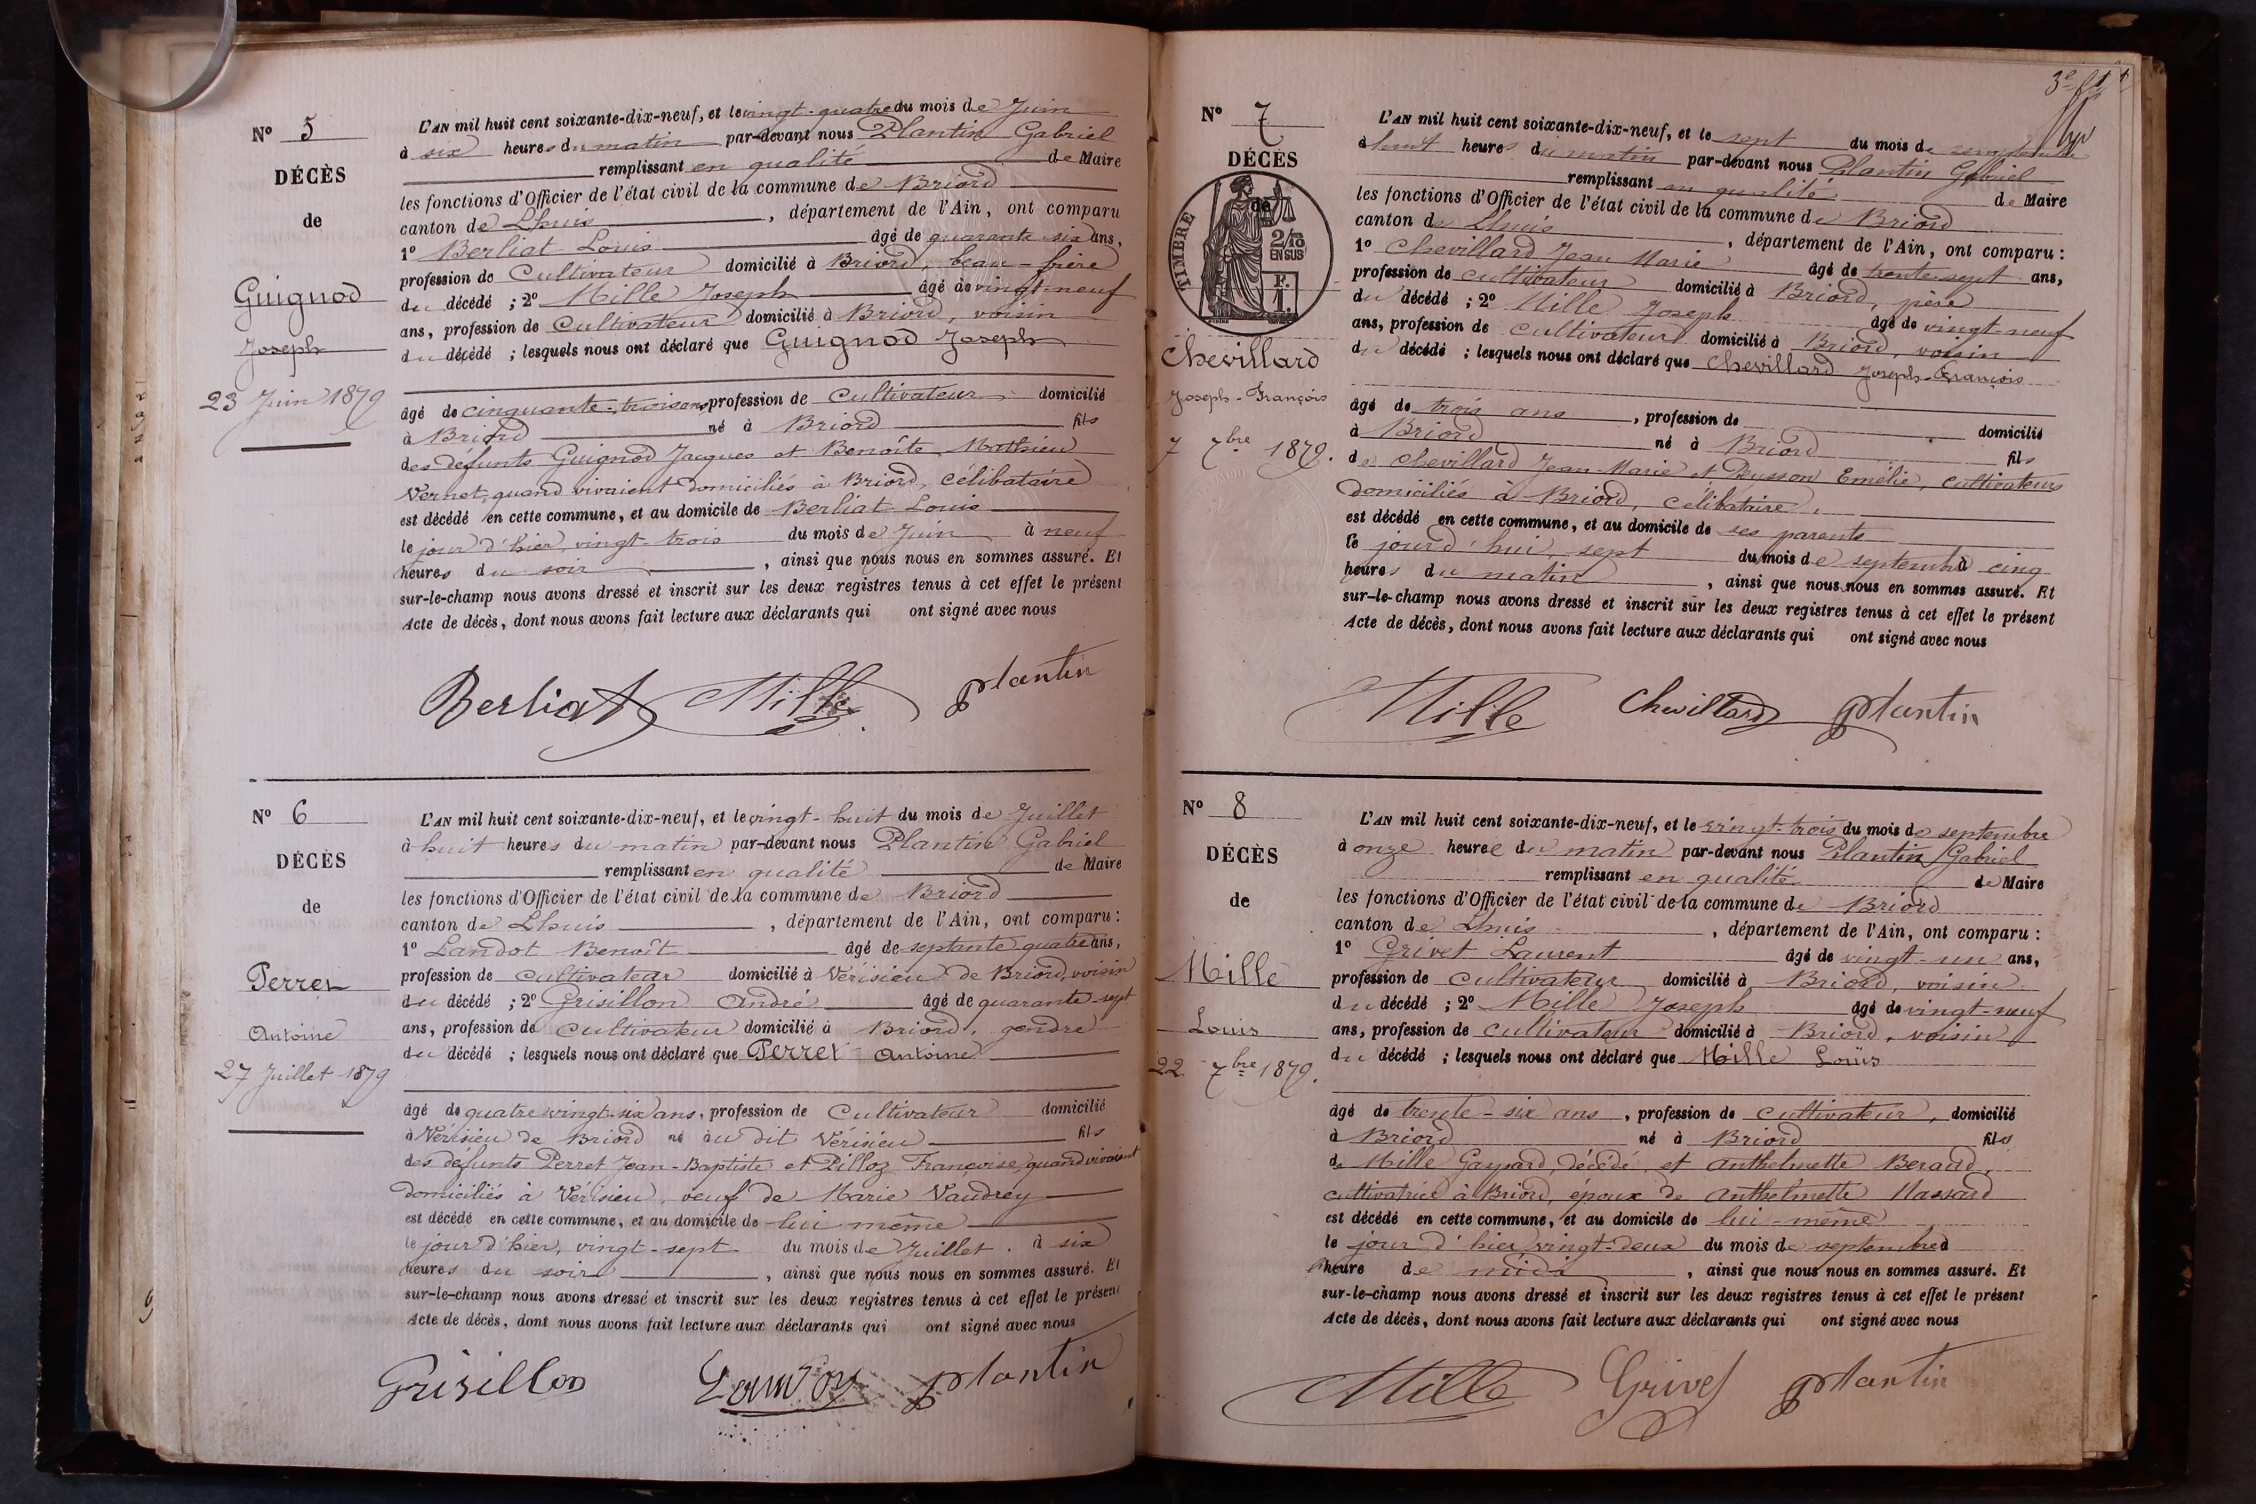 N° 5
DÉCÈS
de
Guignod
Joseph
23 Juin 1879
L'AN mil huit cent soixante-dix-neuf, et le vingt-quatre du mois de Juin
à six heures du matin par-devant nous Plantin Gabriel
remplissant en qualité de Maire
les fonctions d'Officier de l'état civil de la commune de Briord
canton de Lhuis, département de l'Ain, ont comparu
1° Berliat Louis âgé de quarante six ans,
profession de Cultivateur domicilié à Briord, beau-frère
du décédé ; 2° Mille Joseph âgé de vingt-neuf
ans, profession de Cultivateur domicilié à Briord, voisin
du décédé ; lesquels nous ont déclaré que Guignod Joseph
âgé de cinquante-trois ans, profession de Cultivateur domicilié
à Briord né à Briord fils
des défunts Guignod Jacques et Benoîte Mathieu
Vernet, quand vivaient domiciliés à Briord, célibataire
est décédé en cette commune, et au domicile de Berliat Louis
le jour d'hier, vingt-trois du mois de Juin à neuf
heures du soir, ainsi que nous nous en sommes assuré. Et
sur-le-champ nous avons dressé et inscrit sur les deux registres tenus à cet effet le présent
Acte de décès, dont nous avons fait lecture aux déclarants qui ont signé avec nous
Berliat Mille Plantin
N° 6
DÉCÈS
de
Perret
Antoine
27 Juillet 1879
L'AN mil huit cent soixante-dix-neuf, et le vingt-huit du mois de Juillet
à huit heures du matin par-devant nous Plantin Gabriel
remplissant en qualité de Maire
les fonctions d'Officier de l'état civil de la commune de Briord
canton de Lhuis, département de l'Ain, ont comparu :
1° Landot Benoît âgé de septante quatre ans,
profession de cultivateur domicilié à Vérisieu de Briord, voisin
du décédé ; 2° Grisillon André âgé de quarante-sept
ans, profession de cultivateur domicilié à Briord, gendre
du décédé ; lesquels nous ont déclaré que Perret Antoine
âgé de quatre vingt-six ans, profession de Cultivateur domicilié
à Vérisieu de Briord né au dit Vérisieu fils
des défunts Perret Jean-Baptiste et Pilloz Françoise, quand vivaient
domiciliés à Vérisieu, veuf de Marie Vaudrey
est décédé en cette commune, et au domicile de lui même
le jour d'hier, vingt-sept du mois de Juillet. à six
heures du soir, ainsi que nous nous en sommes assuré. Et
sur-le-champ nous avons dressé et inscrit sur les deux registres tenus à cet effet le présent
Acte de décès, dont nous avons fait lecture aux déclarants qui ont signé avec nous
Grisillon Plantin
3e
N° 7
DÉCÈS
de
TIMBRE
2/10
EN SUS
F.
1.
Chevillard
Joseph-François
7 7bre 1879.
L'AN mil huit cent soixante-dix-neuf, et le sept du mois de septembre
à huit heures du matin par-devant nous Plantin Gabriel
remplissant en qualité de Maire
les fonctions d'Officier de l'état civil de la commune de Briord
canton de Lhuis, département de l'Ain, ont comparu :
1° Chevillard Jean Marie âgé de trente-sept ans,
profession de cultivateur domicilié à Briord, père
du décédé ; 2° Mille Joseph âgé de vingt-neuf
ans, profession de cultivateur domicilié à Briord, voisin
du décédé ; lesquels nous ont déclaré que Chevillard Joseph-François
âgé de trois ans, profession de domicilié
à Briord né à Briord fils
de Chevillard Jean-Marie et Dusson Emélie, cultivateurs
domiciliés à Briord, célibataire.
est décédé en cette commune, et au domicile de ses parents
le jour d'hui, sept du mois de septembre à cinq
heures du matin, ainsi que nous nous en sommes assuré. Et
sur-le-champ nous avons dressé et inscrit sur les deux registres tenus à cet effet le présent
Acte de décès, dont nous avons fait lecture aux déclarants qui ont signé avec nous
Mille Chevillard Plantin
N° 8
DÉCÈS
de
Mille
Louis
22 7bre 1879.
L'AN mil huit cent soixante-dix-neuf, et le vingt-trois du mois de septembre
à onze heure du matin par-devant nous Plantin Gabriel
remplissant en qualité de Maire
les fonctions d'Officier de l'état civil de la commune de Briord
canton de Lhuis, département de l'Ain, ont comparu :
1° Grivet Laurent âgé de vingt-un ans,
profession de cultivateur domicilié à Briord, voisin
du décédé ; 2° Mille Joseph âgé de vingt-neuf
ans, profession de cultivateur domicilié à Briord, voisin
du décédé ; lesquels nous ont déclaré que Mille Louis
âgé de trente-six ans, profession de cultivateur, domicilié
à Briord né à Briord fils
de Mille Gaspard, décédé, et Anthelmette Beraud,
cultivatrice à Briord, époux de Anthelmette Massard
est décédé en cette commune, et au domicile de lui-même
le jour d'hier vingt-deux du mois de septembre à
heure de midi, ainsi que nous nous en sommes assuré. Et
sur-le-champ nous avons dressé et inscrit sur les deux registres tenus à cet effet le présent
Acte de décès, dont nous avons fait lecture aux déclarants qui ont signé avec nous
Mille Grivet Plantin